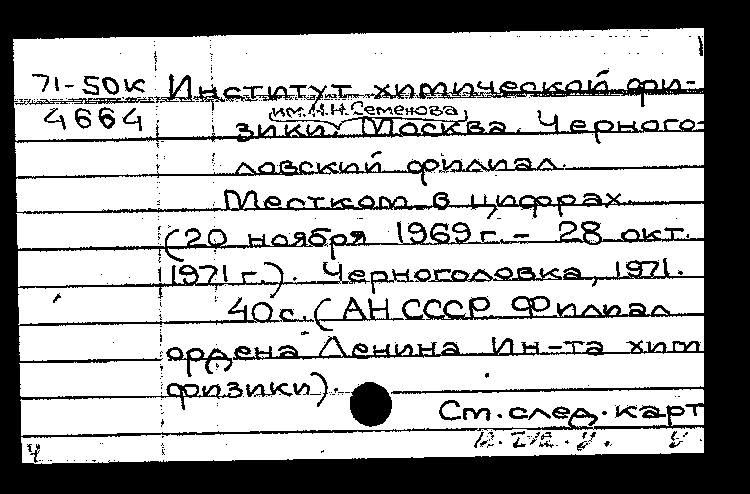 71-50к Институт химической фи-
им. Н.Н. Семенова
4664 зики Москва. Черного-
ловский филиал.
Местком в цифрах
(20 ноября 1969 г. - 28 окт.
1971 г.). Черноголовка, 1971.
40 с. (АН СССР Филиал
ордена Ленина Ин-та хим
физики).
См. след. карт
ч